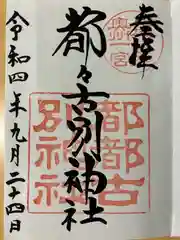 奉拝
都々古別神社
令和四年九月二十四日
都都古
別神社